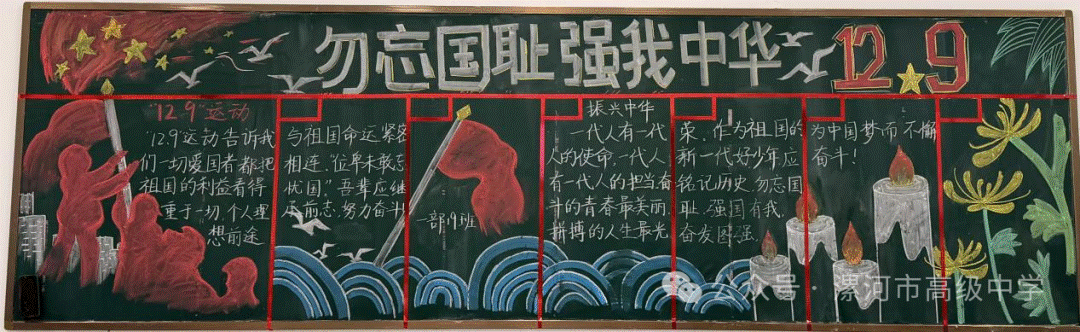 勿忘国耻 强我中华 12.9
"12.9"运动
"12.9"运动告诉我
们一切爱国者都把
祖国的利益看得
重于一切,个人理
想前途
与祖国命运紧密
相连,"位卑未敢忘
忧国"吾辈应继
承前志,努力奋斗
一部19班
振兴中华
一代人有一代
人的使命,一代人
有一代人的担当奋
斗的青春最美丽,
拼搏的人生最光
荣。作为祖国的
新一代好少年应
铭记历史,勿忘国
耻,强国有我,
奋发图强,
为中国梦而不懈
奋斗!
公众号·漯河市高级中学